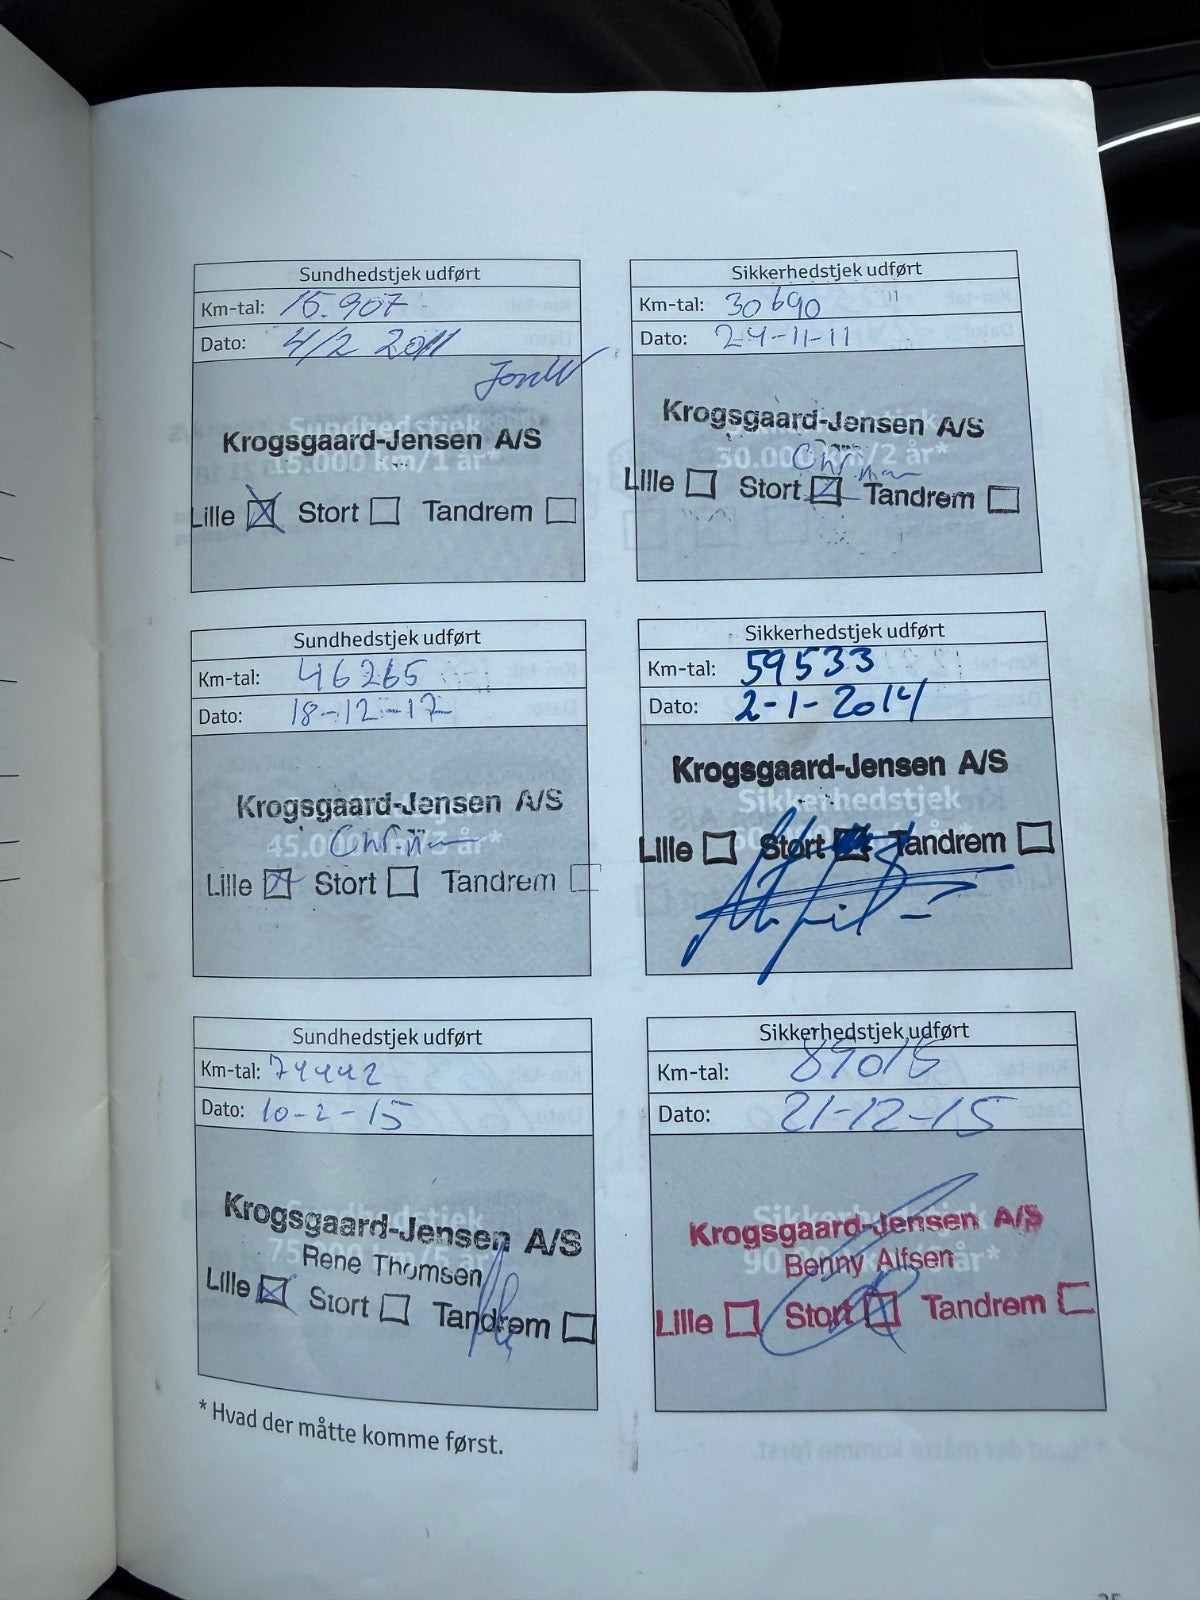 Sundhedstjek udført
Km-tal: 15.907
Dato: 4/2 2011
Krogsgaard-Jensen A/S
Sundhedstjek
15.000 km/1 år*
Lille Stort Tandrem
Sikkerhedstjek udført
Km-tal: 30690
Dato: 24-11-11
Krogsgaard-Jensen A/S
30.000 km/2 år*
Lille Stort Tandrem
Sundhedstjek udført
Km-tal: 46265
Dato: 18-12-12
Krogsgaard-Jensen A/S
45.000 km/3 år*
Lille Stort Tandrem
Sikkerhedstjek udført
Km-tal: 59533
Dato: 2-1-2014
Krogsgaard-Jensen A/S
Sikkerhedstjek
Lille Stort Tandrem
Sundhedstjek udført
Km-tal: 74442
Dato: 10-2-15
Krogsgaard-Jensen A/S
Rene Thomsen
75.000 km/5 år*
Lille Stort Tandrem
Sikkerhedstjek udført
Km-tal: 89015
Dato: 21-12-15
Krogsgaard-Jensen A/S
Benny Alfsen
Lille Stort Tandrem
* Hvad der måtte komme først.